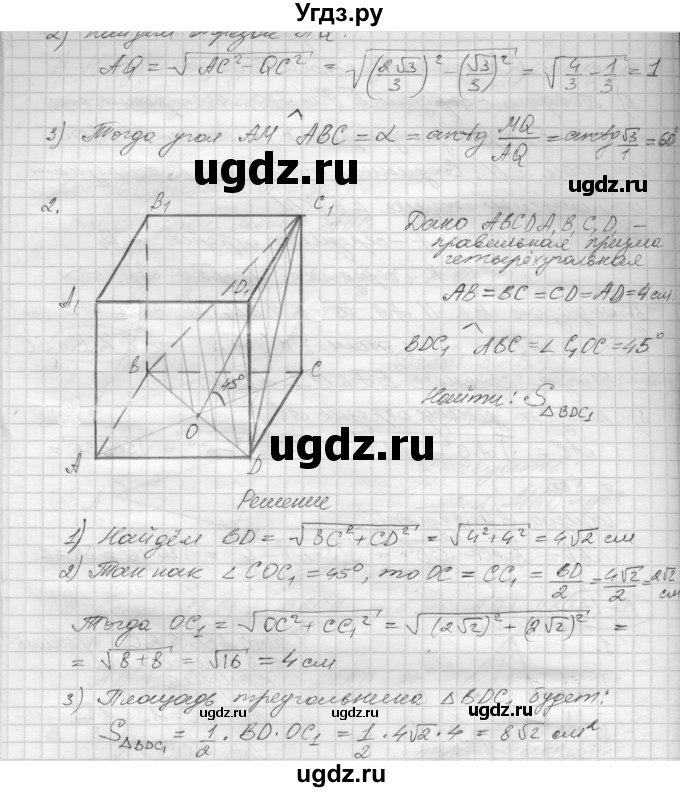 Угдз.ру
AQ = √(AC² − QC²) = √((2√3/3)² − (√3/3)²) = √(4/3 − 1/3) = 1
3) Тогда угол AM^ABC = α = arctg MQ/AQ = arctg √3/1 = 60°
ugdz.ru
2.
B1 C1
A1 D1
B C
45°
O
A D
Дано ABCDA1B1C1D1 –
правильная призма
четырёхугольная
AB = BC = CD = AD = 4 см
BDC1^ABC = ∠C1OC = 45°
Найти: S△BDC1
ugdz.ru
Решение
1) Найдём BD = √(BC² + CD²) = √(4² + 4²) = 4√2 см
2) Так как ∠COC1 = 45°, то OC = CC1 = BD/2 = 4√2/2 = 2√2 см
ugdz.ru
Тогда OC1 = √(OC² + CC1²) = √((2√2)² + (2√2)²) =
= √(8+8) = √16 = 4 см
3) Площадь треугольника △BDC1 будет:
ugdz.ru ugdz.ru
S△BDC1 = 1/2 · BD · OC1 = 1/2 · 4√2 · 4 = 8√2 см²
ugdz.ru